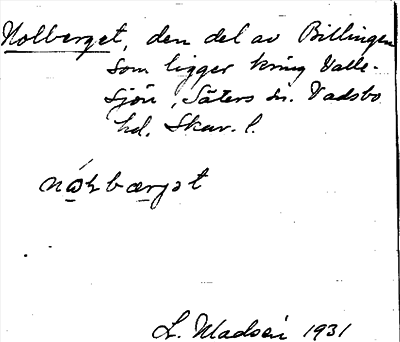 Nolberget, den del av Billingen
som ligger kring Valle-
sjön, Säters sn. Vadsbo
hd. Skar. l.
L. Madsén 1931